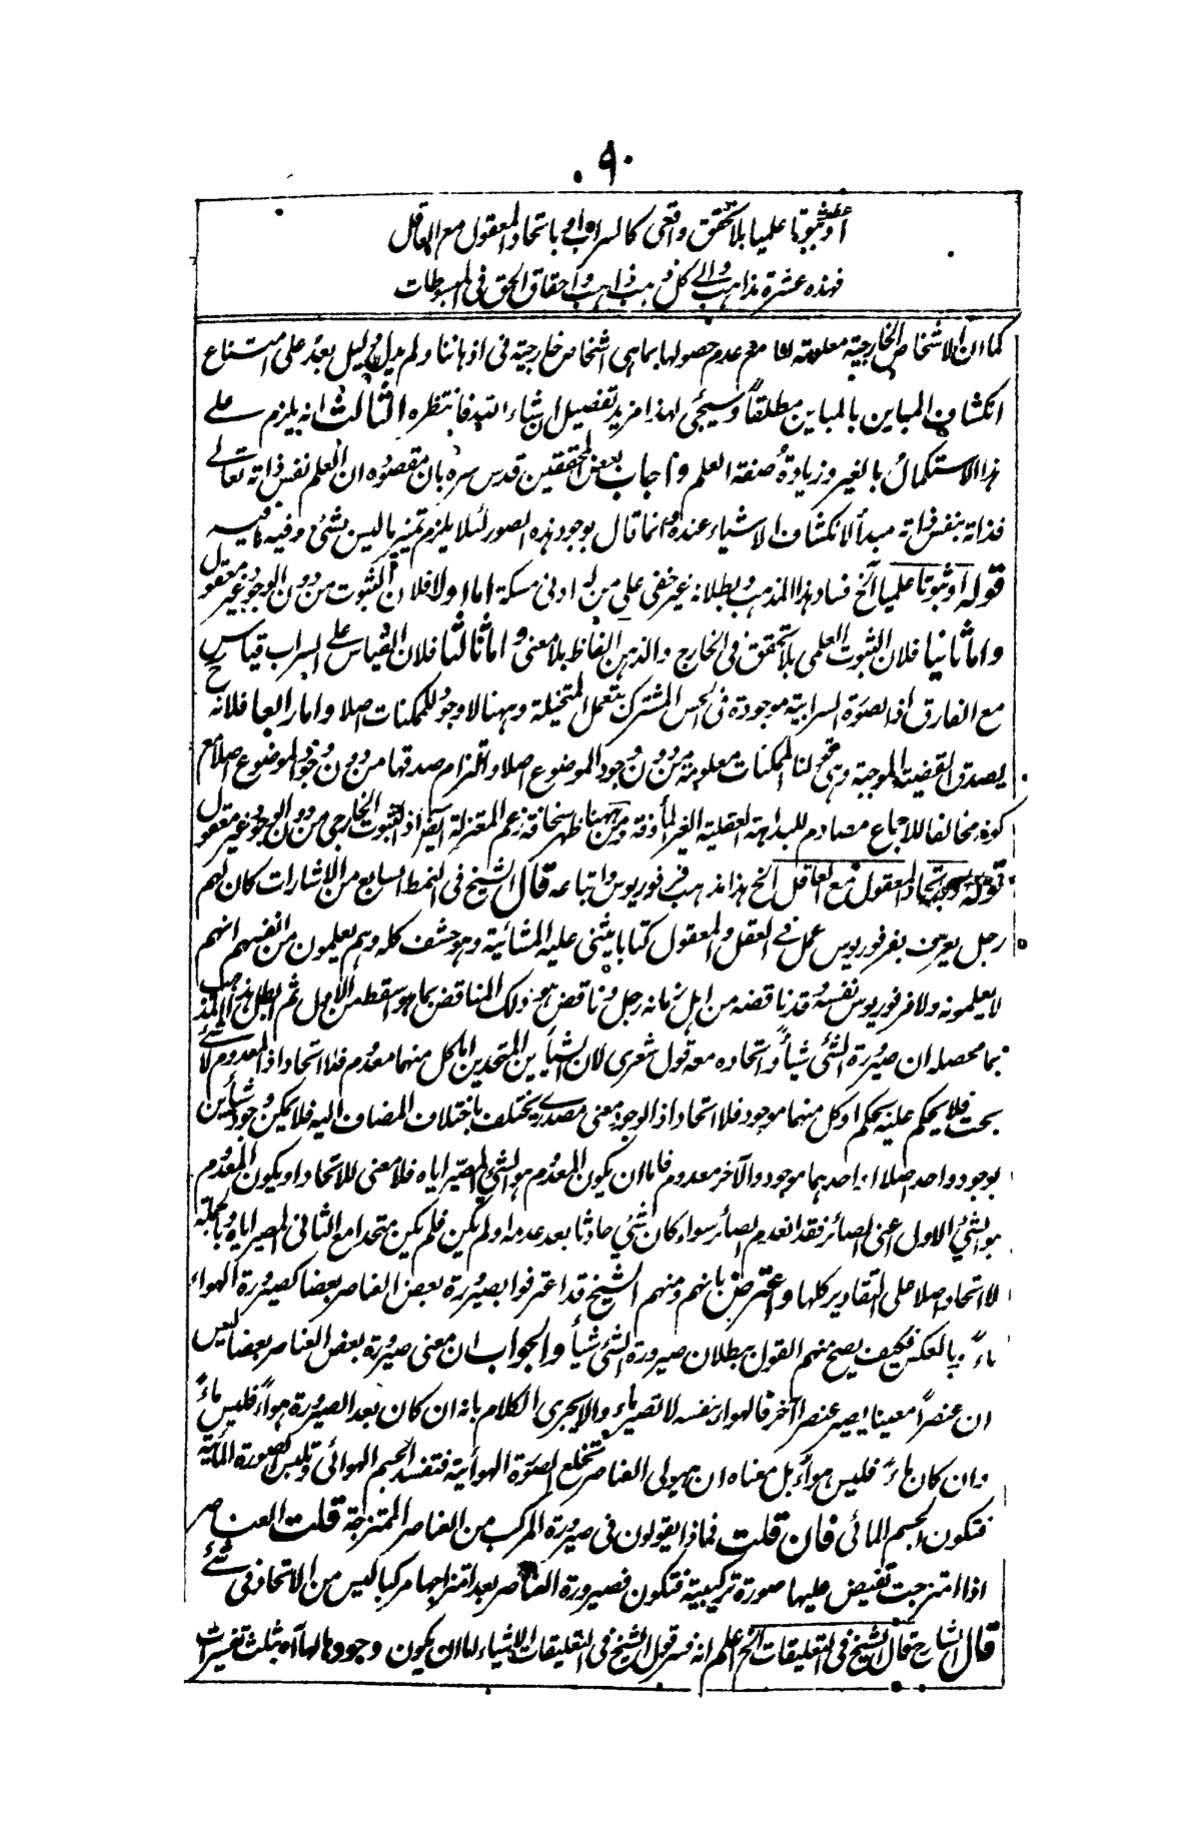 ٩٠
او ثبوتا علميا بلا تحقق واقعى كالسراب او باتحاد المعقول مع العاقل
فهذه عشرة مذاهب والى كل ذهب ذاهب واحقاق الحق فى المبسوطات
كما ان الاشخاص الخارجية معلومة لنا مع عدم حصولها بما هى اشخاص خارجية فى اذهاننا ولم يدل دليل بعد على امتناع
انكشاف المباين بالمباين مطلقاً وسيجئ لهذا مزيد تفصيل ان شاء الله فانتظره الثالث انه يلزم على
هذا الاستكمال بالغير وزيادة صفة العلم واجاب بعض المحققين قدس سره بان مقصوده ان العلم نفس ذاته تعالى
فذاته بنفس ذاته مبدأ لانكشاف الاشياء عنده وانما قال بوجود هذه الصور لئلا يلزم تميز ما ليس بشئ وفيه ما فيه
قوله او ثبوتا علميا آلخ فساد هذا المذهب وبطلانه غير خفى على من له ادنى مسكة اما اولا فلان الثبوت من دون الوجود غير معقول
واما ثانيا فلان الثبوت العلمى بلا تحقق فى الخارج والذهن الفاظ بلا معنى واما ثالثا فلان القياس على السراب قياس
مع الفارق اذ الصورة السرابية موجودة فى الحس المشترك بتعمل المتخيلة وههنا لا وجود للممكنات اصلا واما رابعا فلانه ح
يصدق القضية الموجبة وهى قولنا الممكنات معلومة من دون وجود الموضوع اصلا والتزام صدقها من دون وجود الموضوع اصلا مع
كونه مخالفا للاجماع مصادم للبداهة العقلية الغير المأوفة ومن ههنا ظهر سخافة زعم المعتزلة ايضا اذ الثبوت الخارجى من دون الوجود غير معقول
قوله او باتحاد المعقول مع العاقل الخ هذا مذهب فرفوريوس واتباعه قال الشيخ فى النمط السابع من الاشارات كان لهم
رجل يعرف بفرفوريوس عمل فى العقل والمعقول كتابا يثنى عليه المشائية وهو حشف كله وهم يعلمون من انفسهم انهم
لا يعلمونه ولا فرفوريوس نفسه وقد ناقضه من اهل زمانه رجل وناقض هو ذلك المناقض بما هو اسقط من الاول ثم ابطل هذا المذهب
بما محصله ان صيرورة الشئ شيأً واتحاده معه قول شعرى لان الشيأين المتحدين اما كل منهما معدوم فلا اتحاد اذ المعدوم لا شئ
بحت فلا يحكم عليه بحكم او كل منهما موجود فلا اتحاد اذ الوجود معنى مصدرى يختلف باختلاف المضاف اليه فلا يمكن وجود شيأين
بوجود واحد اصلا او احدهما موجود والآخر معدوم فاما ان يكون المعدوم هو الشئ المصير اياه فلا معنى للاتحاد او يكون المعدوم
هو الشئ الاول اعنى الصائر فقد انعدم الصائر سواء كان شئ حادثا بعد عدمه او لم يكن فلم يكن متحدا مع الثانى المصير اياه وبالجملة
لا اتحاد اصلا على التقادير كلها واعترض بانهم ومنهم الشيخ قد اعترفوا بصيرورة بعض العناصر بعضا كصيرورة الهواء
ماءً وبالعكس فكيف يصح منهم القول ببطلان صيرورة الشئ شيأ والجواب ان معنى صيرورة بعض العناصر بعضا ليس
ان عنصراً معينا يصير عنصرا آخر فالهواء بنفسه لا تصير ماء والا يجرى الكلام بانه ان كان بعد الصيرورة هواءً فليس ماءً
وان كان ماءً فليس هواءً بل معناه ان هيولى العناصر تخلع الصورة الهوائية فتفسد الجسم الهوائى وتلبس الصورة المائية
فتكون الجسم المائى فان قلت فماذا يقولون فى صيرورة المركب من العناصر الممتزجة قلت العناصر
اذا امتزجت تفيض عليها صورة تركيبية فتكون فصيرورة العناصر بعد امتزاجها مركبا ليس من الاتحاد فى شئ
قال الشارح قال الشيخ فى التعليقات الخ اعلم انه فسر قول الشيخ فى التعليقات الاشياء اما ان يكون وجودها لها آه بثلث تفسيرات